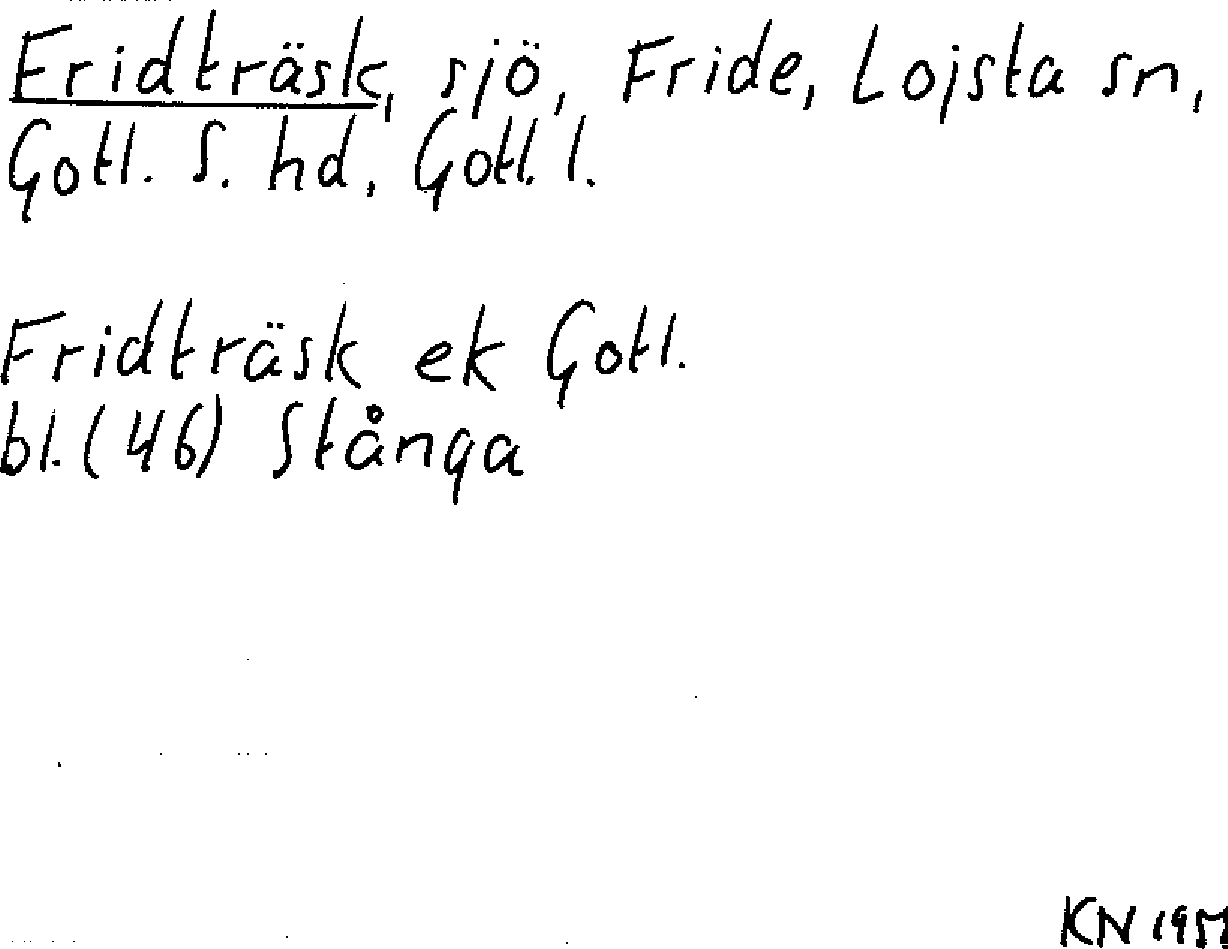 Fridträsk, sjö, Fride, Lojsta sn,
Gotl. S. hd, Gotl. l.
Fridträsk ek Gotl.
bl. (46) Stånga
KN